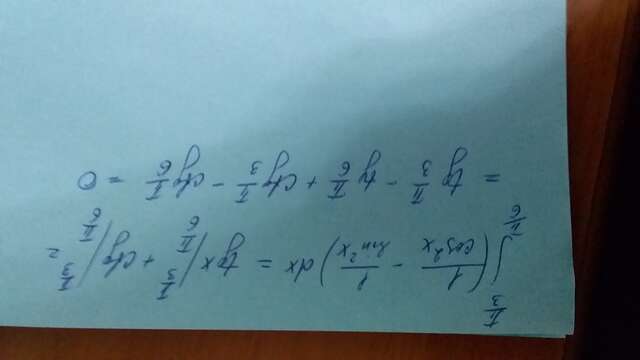 ∫_{π/6}^{π/3} (1/cos²x - 1/sin²x) dx = tg x |_{π/6}^{π/3} + ctg |_{π/6}^{π/3} =
= tg π/3 - tg π/6 + ctg π/3 - ctg π/6 = 0